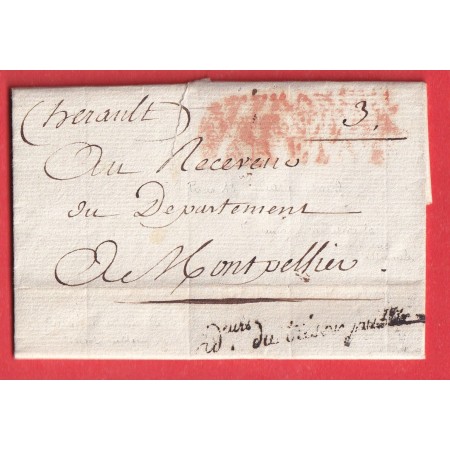 (herault) 3.
Au Receveur
du Departement
A Montpellier.
du tresor